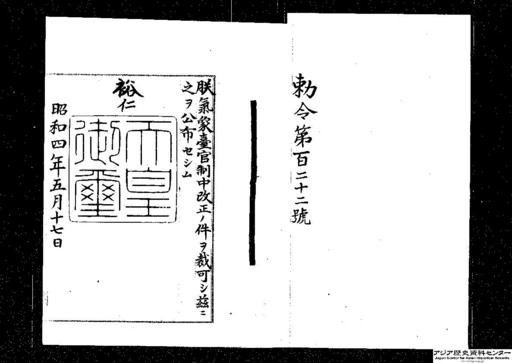 勅令第百二十二號
朕氣象臺官制中改正ノ件ヲ裁可シ茲ニ
之ヲ公布セシム
裕仁
天皇
御璽
昭和四年五月十七日
アジア歴史資料センター
Japan Center for Asian Historical Records